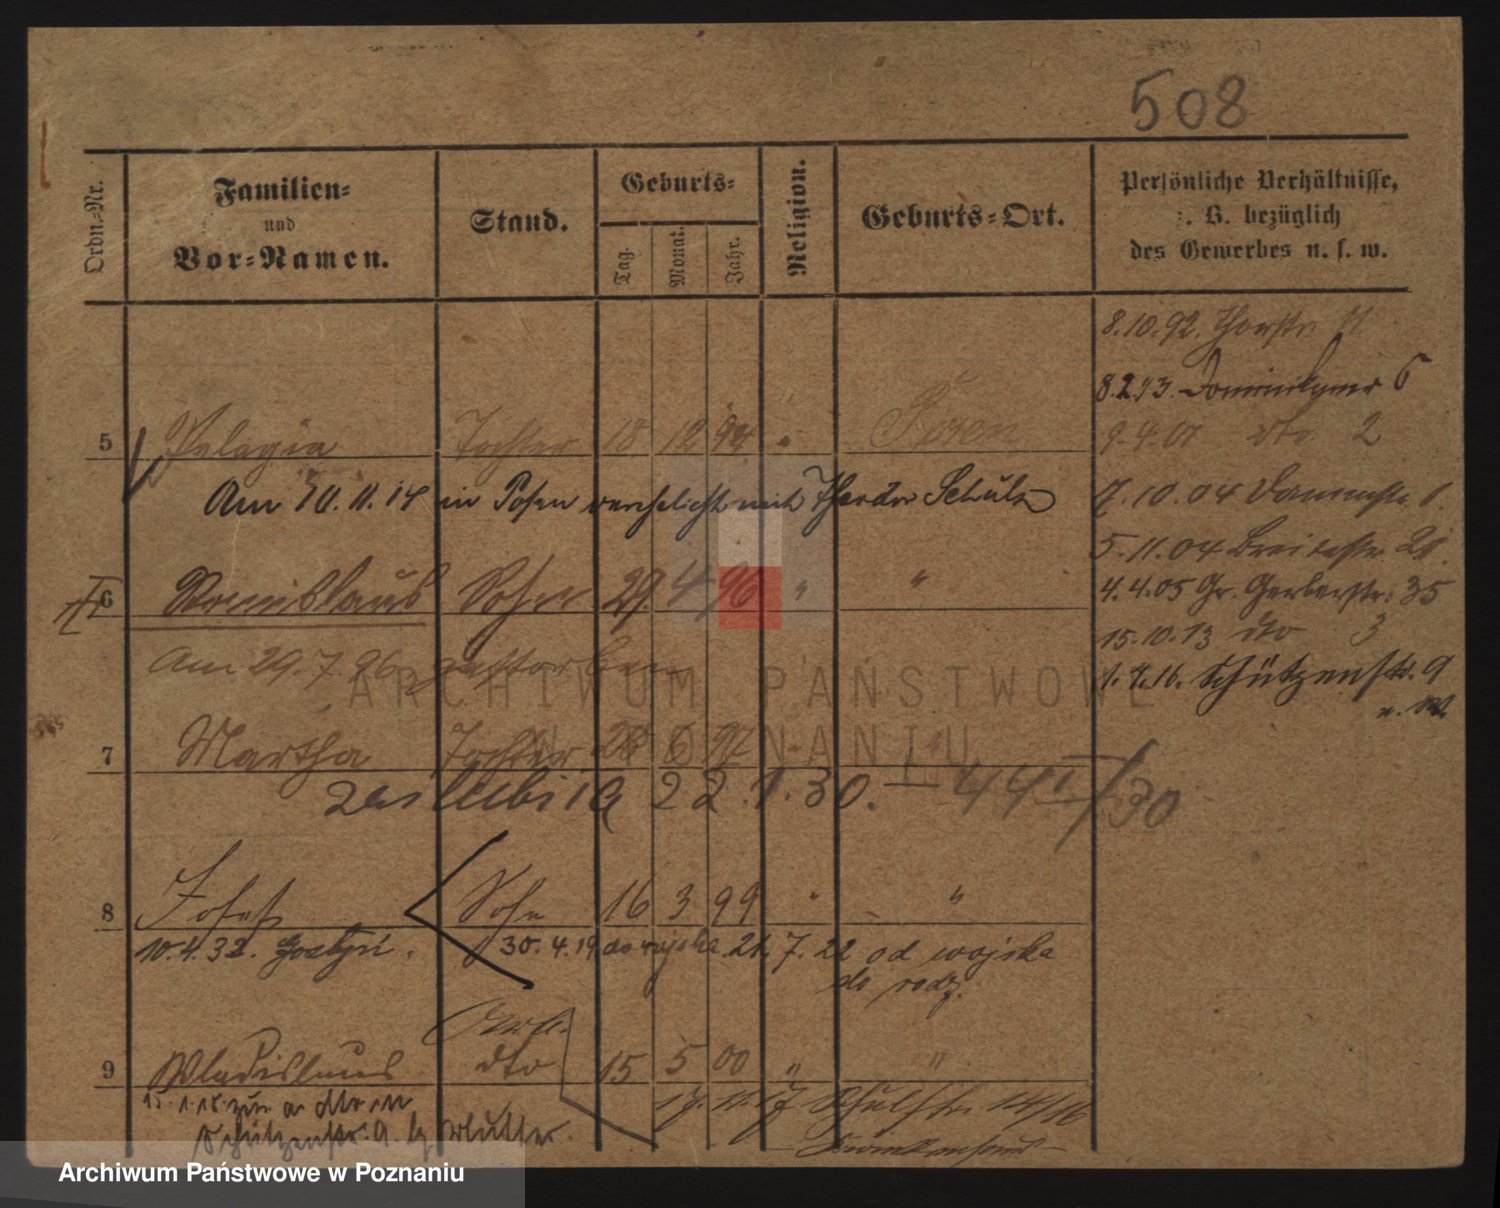 508
Ordn=Nr.
Familien=
und
Vor=Namen.
Stand.
Geburts=
Tag.
Monat.
Jahr.
Religion.
Geburts=Ort.
Persönliche Verhältnisse,
z. B. bezüglich
des Gewerbes u. s. w.
8.10.92. Thorstr.
8.2.93. Dominikaner 6
5 Pelagia Tochter 18 12 94 " Posen
9.4.01 dto 2
Am 10.11.14 in Posen verehelicht mit Theodor Schulz
7.10.04 Dammstr. 1.
5.11.04 Breitestr. 21
6 Stanislaus Sohn 29 4 96 " "
4.4.05 Gr. Gerberstr. 35
15.10.13 dto 3
Am 29.7.96 gestorben
1.4.16. Schützenstr. 9
ARCHIWUM PAŃSTWOWE
W POZNANIU
7 Martha Tochter 28 6 97 "
zaślubiła 22.1.30. – 44 I/30
8 Josef Sohn 16 3 99 " "
10.4.32. Gostyń. 30.4.19 do wojska 21.7.22 od wojska
do rodz.
9 Wladislaus dto 15 5 00 " "
15.1.18 zur
17.11.17 Schulstr. 14/16
Schützenstr. 9. Mutter.
Krankenhaus
Archiwum Państwowe w Poznaniu